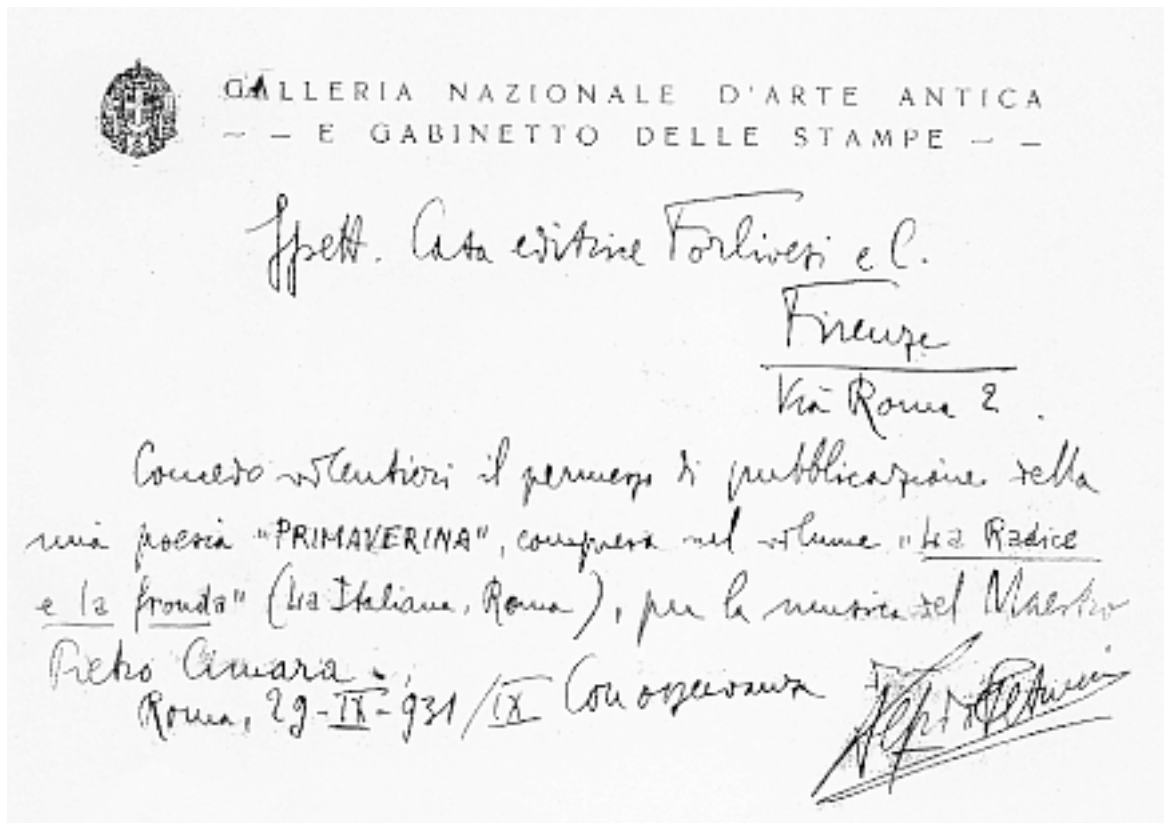 GALLERIA NAZIONALE D'ARTE ANTICA
~ — E GABINETTO DELLE STAMPE — —
Spett. Casa editrice Forlivesi e C.
Firenze
Via Roma 2.
Concedo volentieri il permesso di pubblicazione della
mia poesia "PRIMAVERINA", compresa nel volume "La Radice
e la fronda" (La Italiana, Roma), per la musica del Maestro
Pietro Cimara.
Roma, 29-IX-931/IX Con osservanza